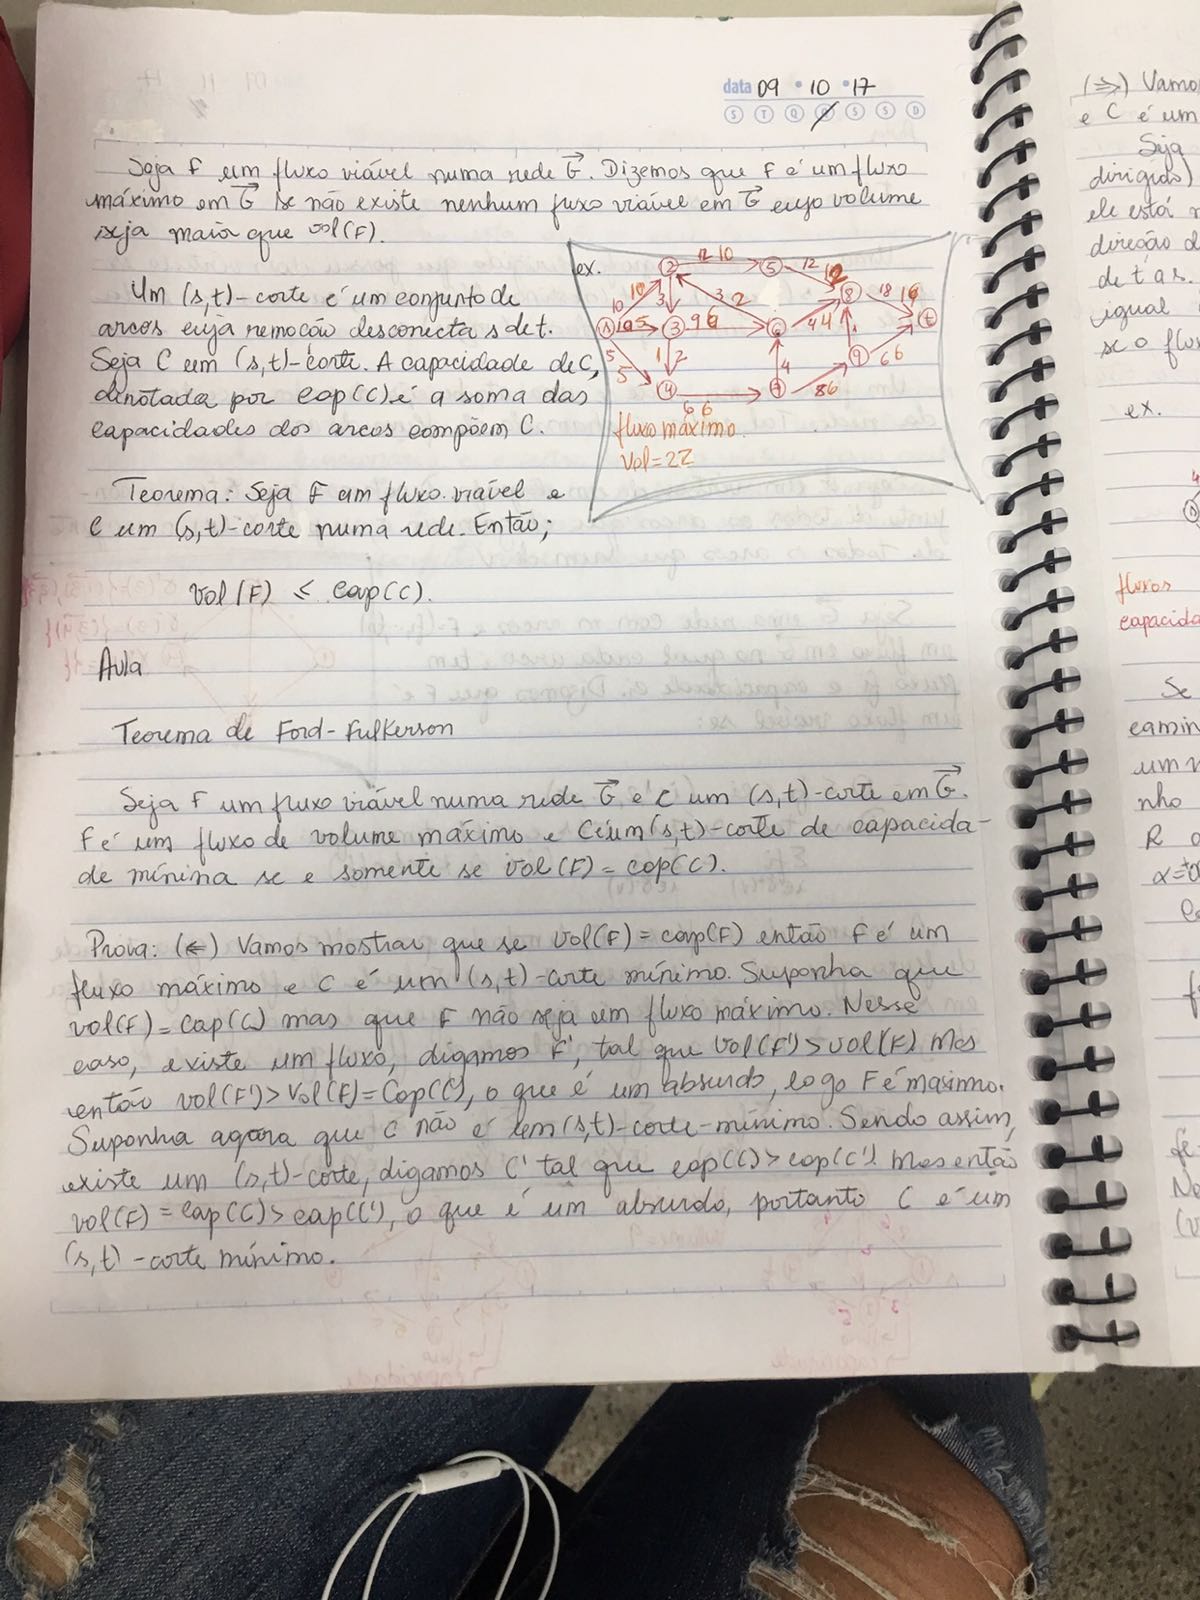 data 09 • 10 • 17
S T Q Q S S D
Seja F um fluxo viável numa rede G. Dizemos que F é um fluxo
máximo em G se não existe nenhum fluxo viável em G cujo volume
seja maior que vol(F).
Um (s,t)-corte é um conjunto de
arcos cuja remoção desconecta s de t.
Seja C um (s,t)-corte. A capacidade de C,
denotada por cap(C) é a soma das
capacidades dos arcos compõem C.
ex.
2 12 10 5 12 10 8 18 16 t
10 10 3 3 2
s 10 5 3 9 6 6 4 4
5 5 1 2 4 9 6 6
4 6 6 7 8 6
fluxo máximo
Vol = 22
Teorema: Seja F um fluxo viável e
C um (s,t)-corte numa rede. Então;
Vol(F) ≤ cap(C).
Aula
Teorema de Ford-Fulkerson
Seja F um fluxo viável numa rede G e C um (s,t)-corte em G.
F é um fluxo de volume máximo e C é um (s,t)-corte de capacida-
de mínima se e somente se vol(F) = cap(C).
Prova: (⇐) Vamos mostrar que se vol(F) = cap(F) então F é um
fluxo máximo e C é um (s,t)-corte mínimo. Suponha que
vol(F) = cap(C) mas que F não seja um fluxo máximo. Nesse
caso, existe um fluxo, digamos F', tal que vol(F') > vol(F). Mas
então vol(F') > Vol(F) = Cap(C), o que é um absurdo, logo F é maximo.
Suponha agora que C não é um (s,t)-corte-mínimo. Sendo assim,
existe um (s,t)-corte, digamos C' tal que cap(C) > cap(C'). Mas então
vol(F) = cap(C) > cap(C'), o que é um absurdo, portanto C é um
(s,t)-corte mínimo.
(⇒) Vamo
e C é um
Seja
dirigias)
ele está n
direção d
de t a s.
igual
se o flu
ex.
4
fluxos
capacida
Se
camin
um n
nho
R